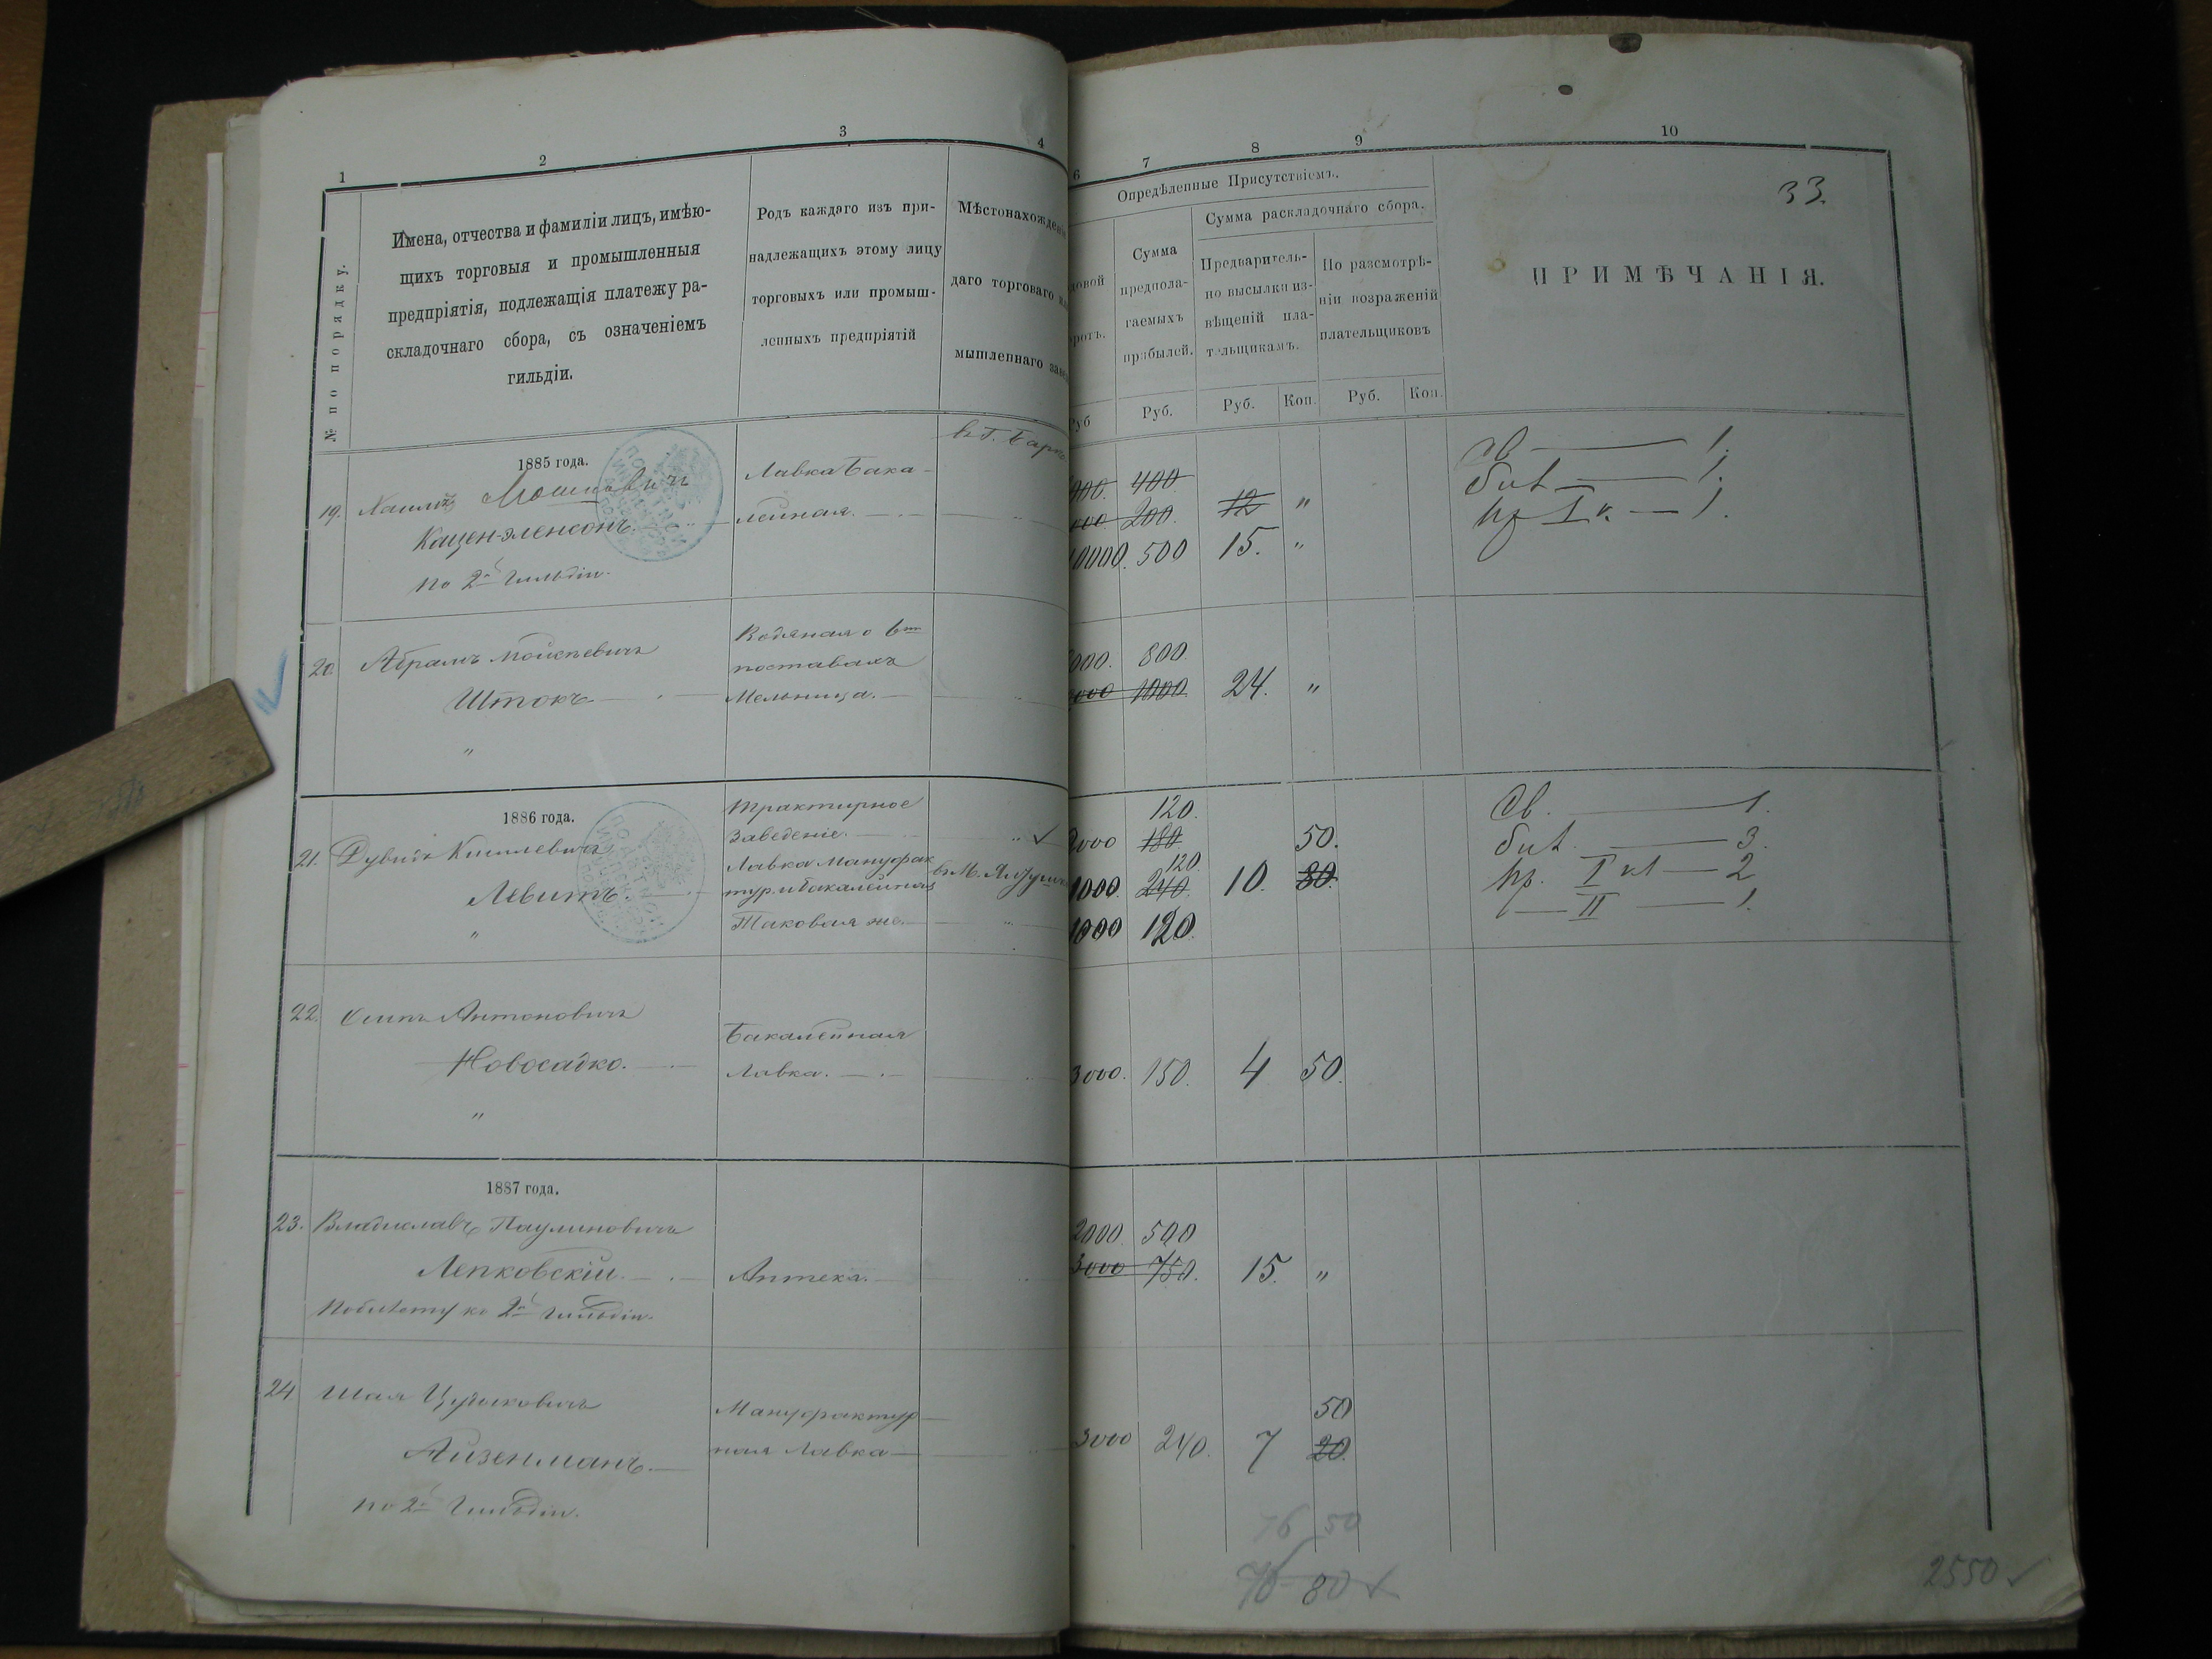 1
2
3
4
6
7
8
9
10
33.
№ по порядку.
Имена, отчества и фамиліи лицъ, имѣю-
щихъ торговыя и промышленныя
предпріятія, подлежащія платежу ра-
складочнаго сбора, съ означеніемъ
гильдіи.
Родъ каждаго изъ при-
надлежащихъ этому лицу
торговыхъ или промыш-
ленныхъ предпріятій
Мѣстонахожден
даго торговаго
мышленнаго
Опредѣленные Присутствіемъ.
Сумма
предпола-
гаемыхъ
прибылей.
Сумма раскладочнаго сбора.
Предваритель-
но высылки из-
вѣщеній пла-
тельщикамъ.
По разсмотрѣ-
ніи возраженій
плательщиковъ
Руб
Руб.
Руб.
Коп.
Руб.
Коп.
ПРИМѢЧАНІЯ.
1885 года.
19. Мошковичъ
Каценэленсонъ
по 2й гильдіи.
Лавка Бака-
лейная.
в г.
400
200
0000. 500
12 "
15. "
св — 1.
бил — 1.
пр I к. — 1.
20 Абрамъ Мойсеевичъ
Штокъ
"
Водяная о 6ти
поставахъ
Мельница.
000. 800
000 1000
24. "
1886 года.
21. Дувидъ Кисилевичъ
Левитъ.
"
Трактирное
Заведеніе.
Лавка Мануфак
тур. и бакалейная
Таковая же.
в М.
120.
180
120
240
1000 120
10.
50.
80.
Св. — 1.
бил — 3.
пр. I кл — 2
II — 1.
22. Осипъ Антоновичъ
Новосадко.
"
Бакалейная
Лавка.
3000. 150. 4 50.
1887 года.
23. Владиславъ Паулиновичъ
Лепковскій.
По билету ко 2й гильдіи.
Аптека.
2000 500
3000 750.
15. "
24 Шая Цудиковичъ
Айзенманъ.
по 2й Гильдіи.
Мануфактур
ная Лавка
3000 240. 7
50
20.
76 50
76 80
2550